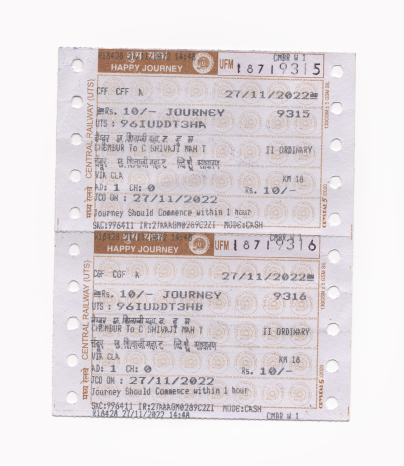 शुभ यात्रा
HAPPY JOURNEY
UFM 18719315
CMBR W 1
CENTRAL RAILWAY (UTS)
मध्य रेलवे
CFF CFF A 27/11/2022
Rs. 10/- JOURNEY 9315
UTS: 96IUDDT3HA
CHEMBUR To C SHIVAJI MAH T II ORDINARY
VIA CLA KM 18
AD: 1 CH: 0 Rs. 10/-
JCO ON : 27/11/2022
Journey Should Commence within 1 hour
SAC:996411 IR:27AAAGM0289C2ZI MODE:CASH
R18428 27/11/2022 14:48
शुभ यात्रा
HAPPY JOURNEY
UFM 18719316
CMBR W 1
CENTRAL RAILWAY (UTS)
मध्य रेलवे
CGF CGF A 27/11/2022
Rs. 10/- JOURNEY 9316
UTS: 96IUDDT3HB
CHEMBUR To C SHIVAJI MAH T II ORDINARY
VIA CLA KM 18
AD: 1 CH: 0 Rs. 10/-
JCO ON : 27/11/2022
Journey Should Commence within 1 hour
SAC:996411 IR:27AAAGM0289C2ZI MODE:CASH
R18428 27/11/2022 14:48 CMBR W 1